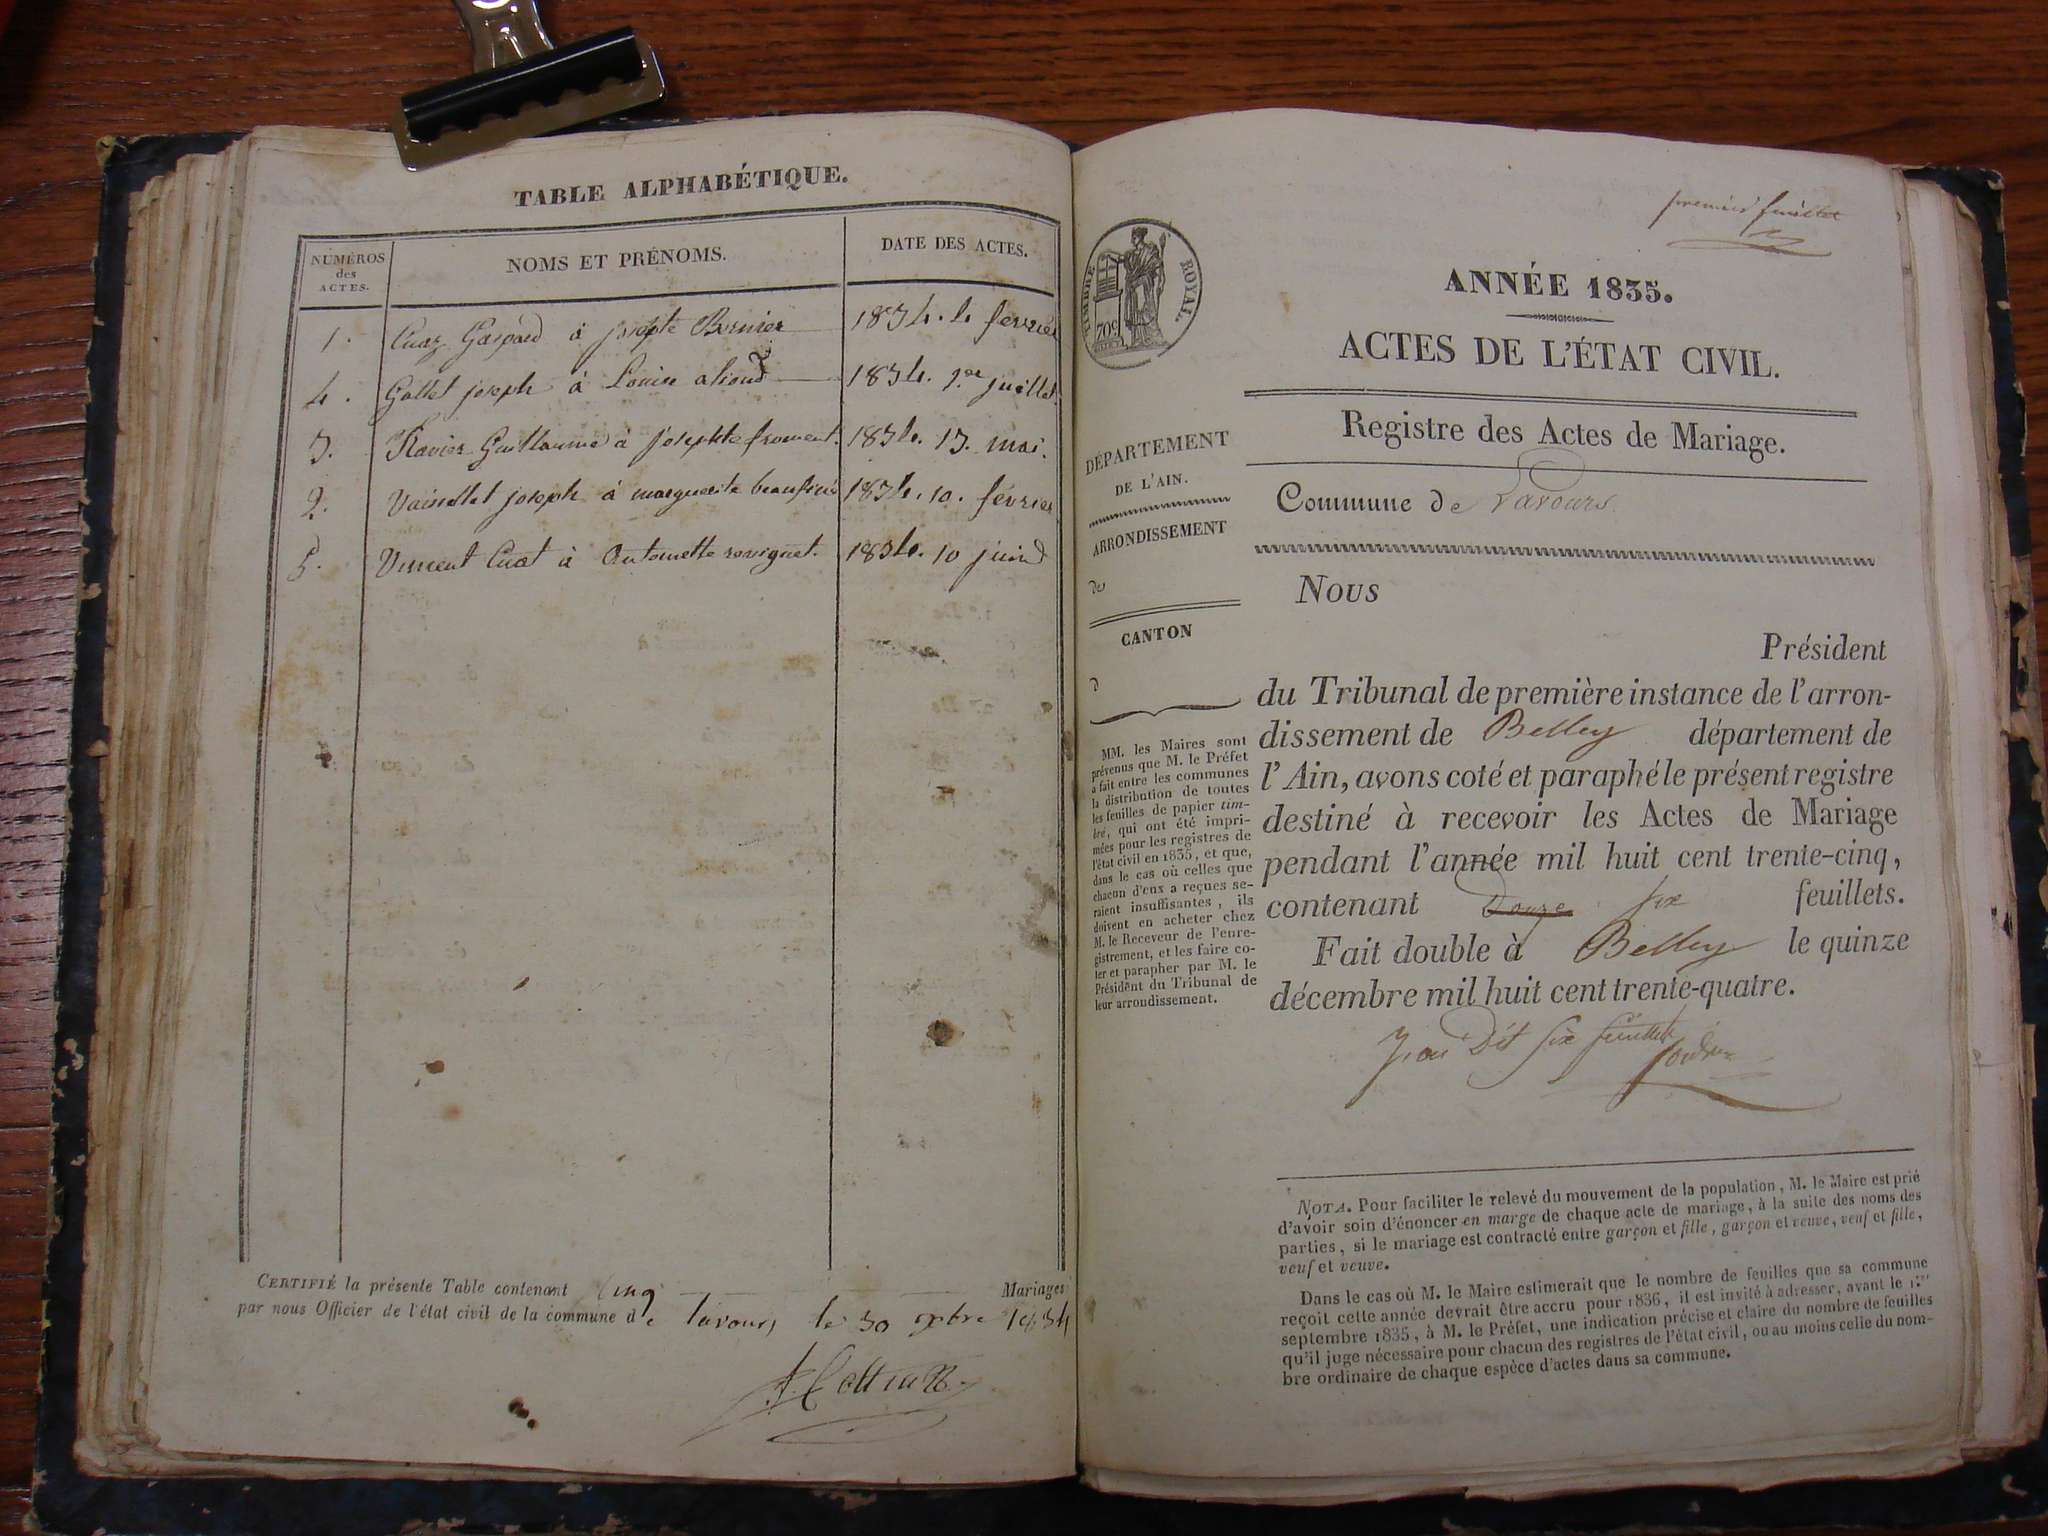 TABLE ALPHABÉTIQUE.
NUMÉROS des ACTES.
NOMS ET PRÉNOMS.
DATE DES ACTES.
1. Cuaz Gaspard à josephte Bernier 1834. 4 février
4. Gallet joseph à Louise aliond 1834. 1er juillet.
3. Ravier Guillaume à josephte froment. 1834. 13. mai.
2. joseph à marguerite 1834. 10. février
5. Vincent Cuat à Antoinette 1834. 10 juin
CERTIFIÉ la présente Table contenant Cinq Mariages
par nous Officier de l'état civil de la commune de Lavours le 30 xbre 1834
premier feuillet
TIMBRE ROYAL.
70c
ANNÉE 1835.
ACTES DE L'ÉTAT CIVIL.
Registre des Actes de Mariage.
Commune de Lavours
DÉPARTEMENT
DE L'AIN.
ARRONDISSEMENT
de
CANTON
d
MM. les Maires sont
prévenus que M. le Préfet
a fait entre les communes
la distribution de toutes
les feuilles de papier tim-
bré, qui ont été impri-
mées pour les registres de
l'état civil en 1835, et que,
dans le cas où celles que
chacun d'eux a reçues se-
raient insuffisantes, ils
doivent en acheter chez
M. le Receveur de l'enre-
gistrement, et les faire co-
ter et parapher par M. le
Président du Tribunal de
leur arrondissement.
Nous
Président
du Tribunal de première instance de l'arron-
dissement de Belley département de
l'Ain, avons coté et paraphé le présent registre
destiné à recevoir les Actes de Mariage
pendant l'année mil huit cent trente-cinq,
contenant Douze six feuillets.
Fait double à Belley le quinze
décembre mil huit cent trente-quatre.
Dit six feuillets
NOTA. Pour faciliter le relevé du mouvement de la population, M. le Maire est prié
d'avoir soin d'énoncer en marge de chaque acte de mariage, à la suite des noms des
parties, si le mariage est contracté entre garçon et fille, garçon et veuve, veuf et fille,
veuf et veuve.
Dans le cas où M. le Maire estimerait que le nombre de feuilles que sa commune
reçoit cette année devrait être accru pour 1836, il est invité à adresser, avant le 1.er
septembre 1835, à M. le Préfet, une indication précise et claire du nombre de feuilles
qu'il juge nécessaire pour chacun des registres de l'état civil, ou au moins celle du nom-
bre ordinaire de chaque espèce d'actes dans sa commune.